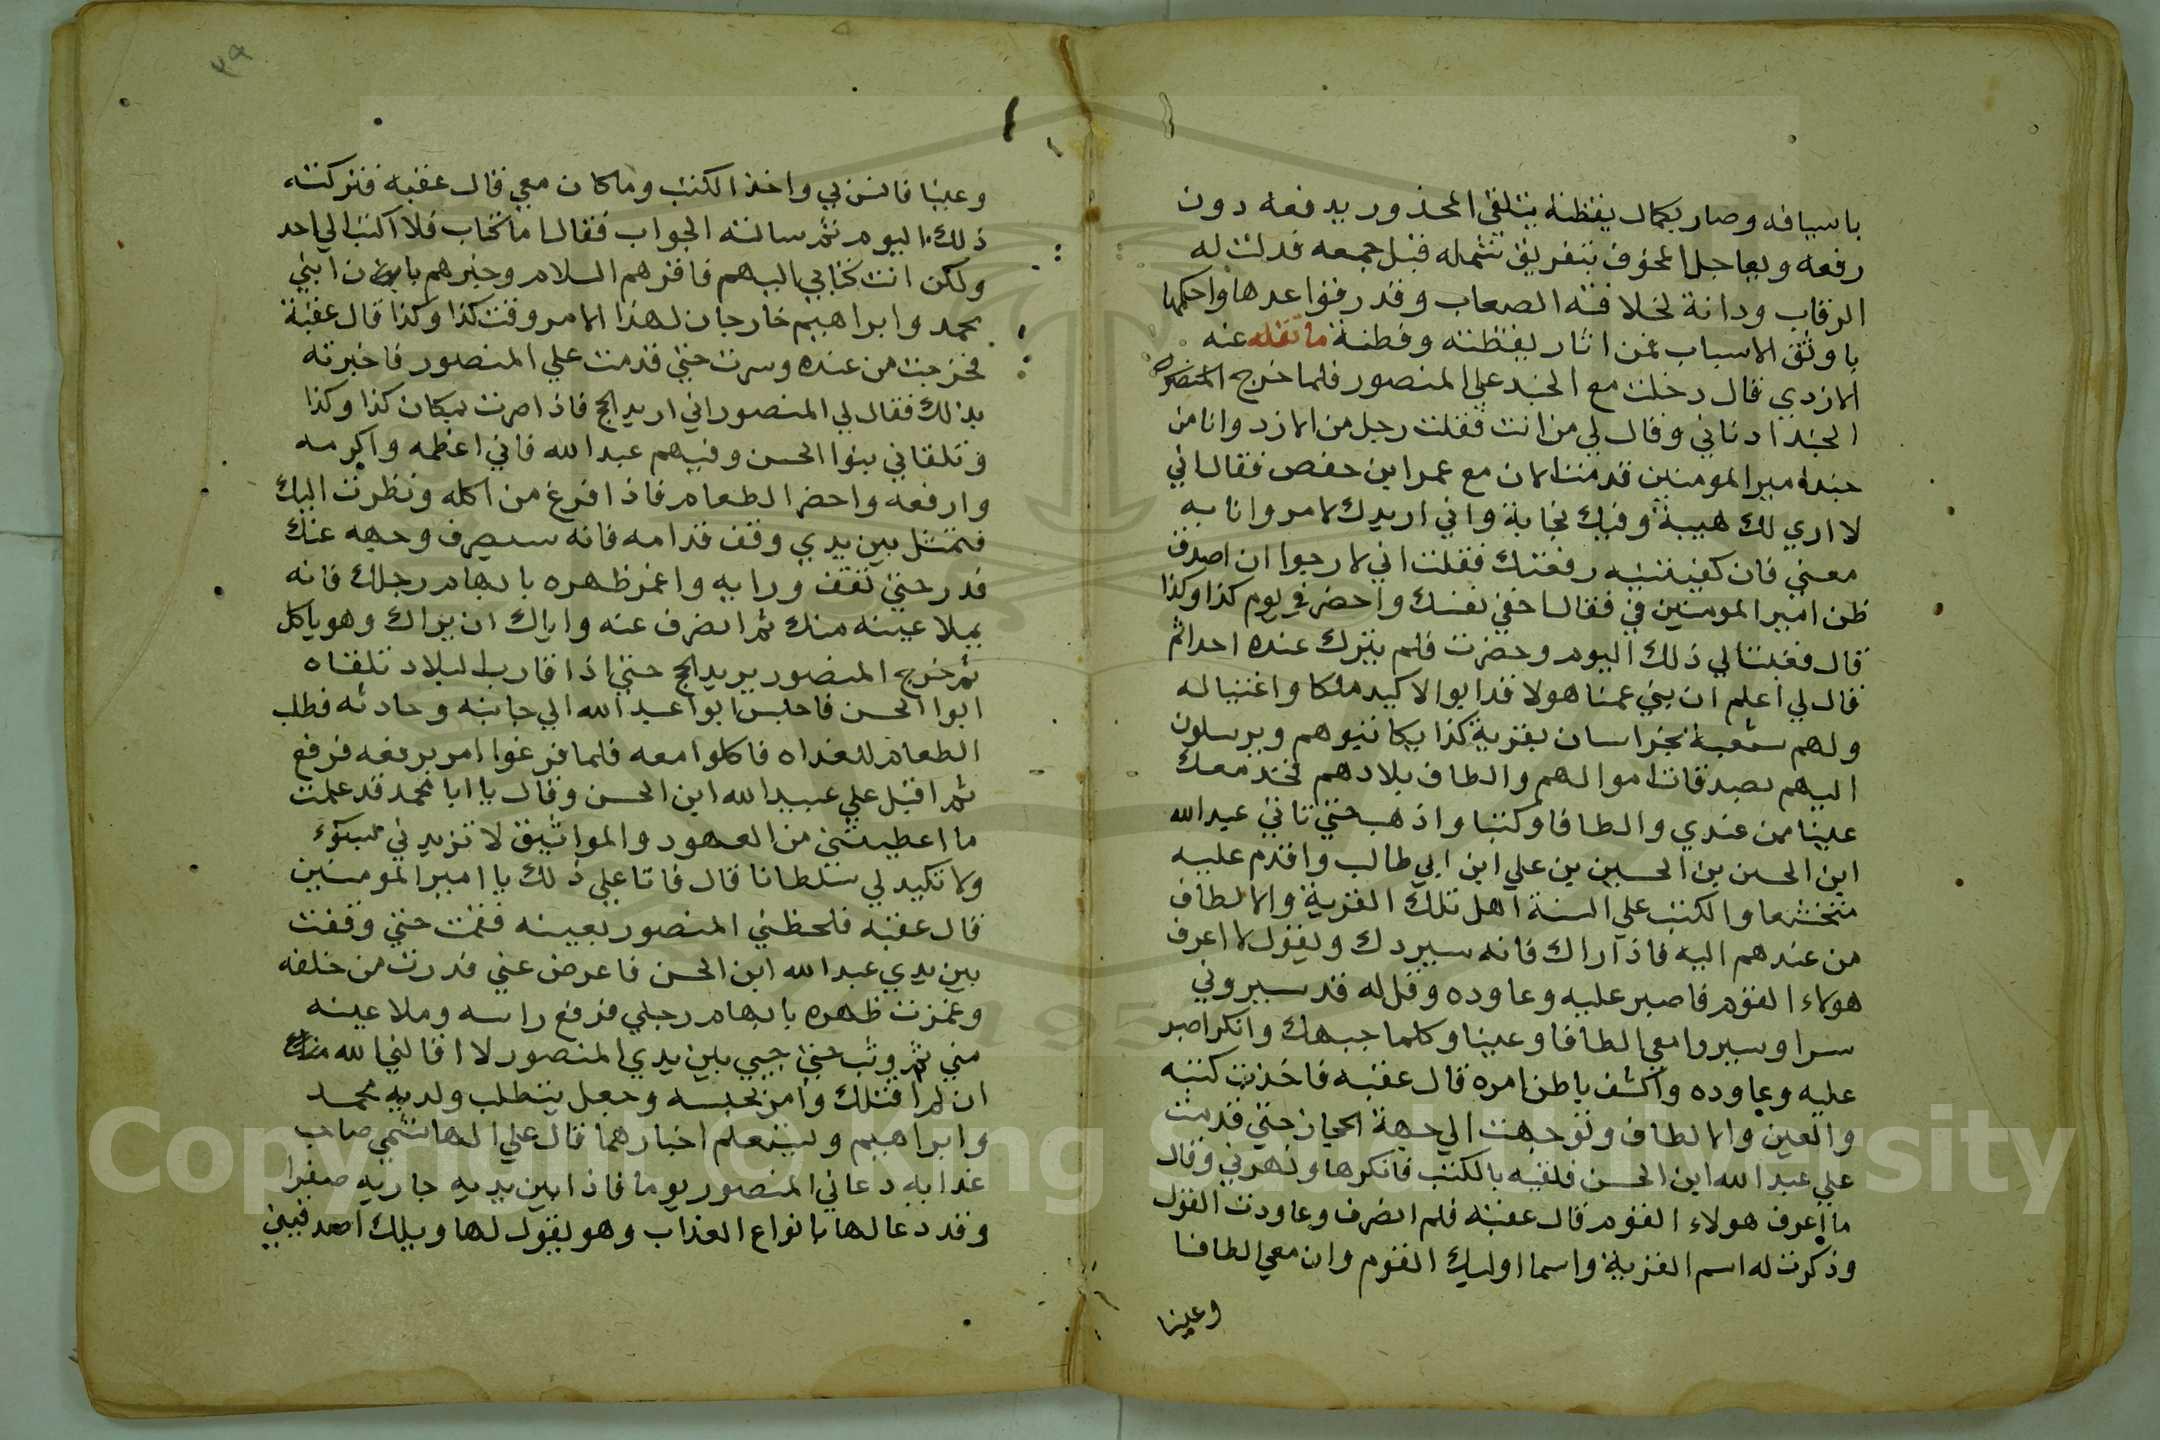 باسيافه وصار بكمال يقظته يتلقى المحذور يدفعه دون
رفعه ويعاجل المخوف بتفريق شمله قبل جمعه فدلت له
الرقاب ودانة لخلافته الصعاب وقد رقواعدها واحكمها
باوثق الاسباب فمن اثار يقظته وفطنة ما نقله عنه
الازدي قال دخلت مع الجند على المنصور فلما خرج
الجند ادناني وقال لي من انت فقلت رجل من الازد وانا من
جند امير المومنين قدمت الان مع عمر ابن حفص فقال اني
لا اري لك هيبة وفيك نجابة واني اريدك لامر وانا به
معني فان كفيتنيه رفعتك فقلت اني لارجوا ان اصدق
ظن امير المومنين في فقال اخفي نفسك واحضر في يوم كذا وكذا
قال فغبت الي ذلك اليوم وحضرت فلم يترك عنده احدا ثم
قال لي اعلم ان بني عمنا هولا قد ابوا الا كيد ملكنا واغتيا له
ولهم شعبة بخراسان بقرية كذا يكاتبوهم ويرسلون
اليهم بصدقات اموالهم والطاف بلادهم فخذ معك
عينا من عندي والطافا وكتبا واذهب حتي تاتي عبد الله
ابن الحسن بن الحسين بن علي ابن ابي طالب واقدم عليه
متخشعا والكتب علي السنة اهل تلك القرية والالطاف
من عندهم اليه فاذا راك فانه سيردك ويقول لا اعرف
هولاء القوم فاصبر عليه وعاوده وقل له قد سيروني
سرا وسيروا معي الطافا وعينا وكلما جبهك وانكر اصبر
عليه وعاوده واكشف باطن امره قال عقبه فاخذت كتبه
والعين والالطاف وتوجهت الي جهة الحجاز حتي قدمت
علي عبد الله ابن الحسن فلقيه بالكتب فانكرها ونهرني وقال
ما اعرف هولاء القوم قال عقبه فلم انصرف وعاودت القول
وذكرت له اسم القرية واسما اوليك القوم وان معي الطافا
وعينا
وعينا فانس بي واخذ الكتب وما كان معي قال عقبه فتركته
ذلك اليوم ثم سالته الجواب فقال اما كتاب فلا اكتب الي احد
ولكن انت كتابي اليهم فاقرهم السلام وخبرهم بان ابني
محمد وابراهيم خارجان لهذا الامر وقت كذا وكذا قال عقبة
فخرجت من عنده وسرت حتي قدمت علي المنصور فاخبرته
بذلك فقال لي المنصور اني اريد الحج فاذا صرت بمكان كذا وكذا
وتلقاني بنوا الحسن وفيهم عبد الله فاني اعظمه واكرمه
وارفعه واحضر الطعام فاذا فرغ من اكله ونظرت اليك
فتمثل بين يدي وقف قدامه فانه سيصرف وجهه عنك
فدر حتي تقف ورايه واغمز ظهره بابهام رجلك فانه
يملا عينه منك ثم انصرف عنه واياك ان يراك وهو ياكل
ثم خرج المنصور يريد الحج حتي اذا قارب البلاد تلقاه
ابوا الحسن فاجلس ابوا عبد الله الي جانبه وحادثه فطلب
الطعام للغداه فاكلوا معه فلما فرغوا امر برفعه فرفع
ثم اقبل علي عبد الله ابن الحسن وقال يا ابا محمد قد علمت
ما اعطيتني من العهود والمواثيق لا تريدني بسوء
ولا تكيد لي سلطانا قال فانا علي ذلك يا امير المومنين
قال عقبه فلحظني المنصور بعينه فقمت حتي وقفت
بين يدي عبد الله ابن الحسن فاعرض عني فدرت من خلفه
وغمزت ظهره بابهام رجلي فرفع راسه وملا عينه
مني ثم وثب حتي جيي بين يدي المنصور لا اقالني الله منك
ان لم اقتلك وامر بحبسه وجعل يتطلب ولديه محمد
وابراهيم وليتعلم اخبارهما قال علي الهاشمي صاحب
غدايه دعاني المنصور يوما فاذا بين يديه جاريه صفرا
وقد دعا لها بانواع العذاب وهو يقول لها ويلك اصدقيني